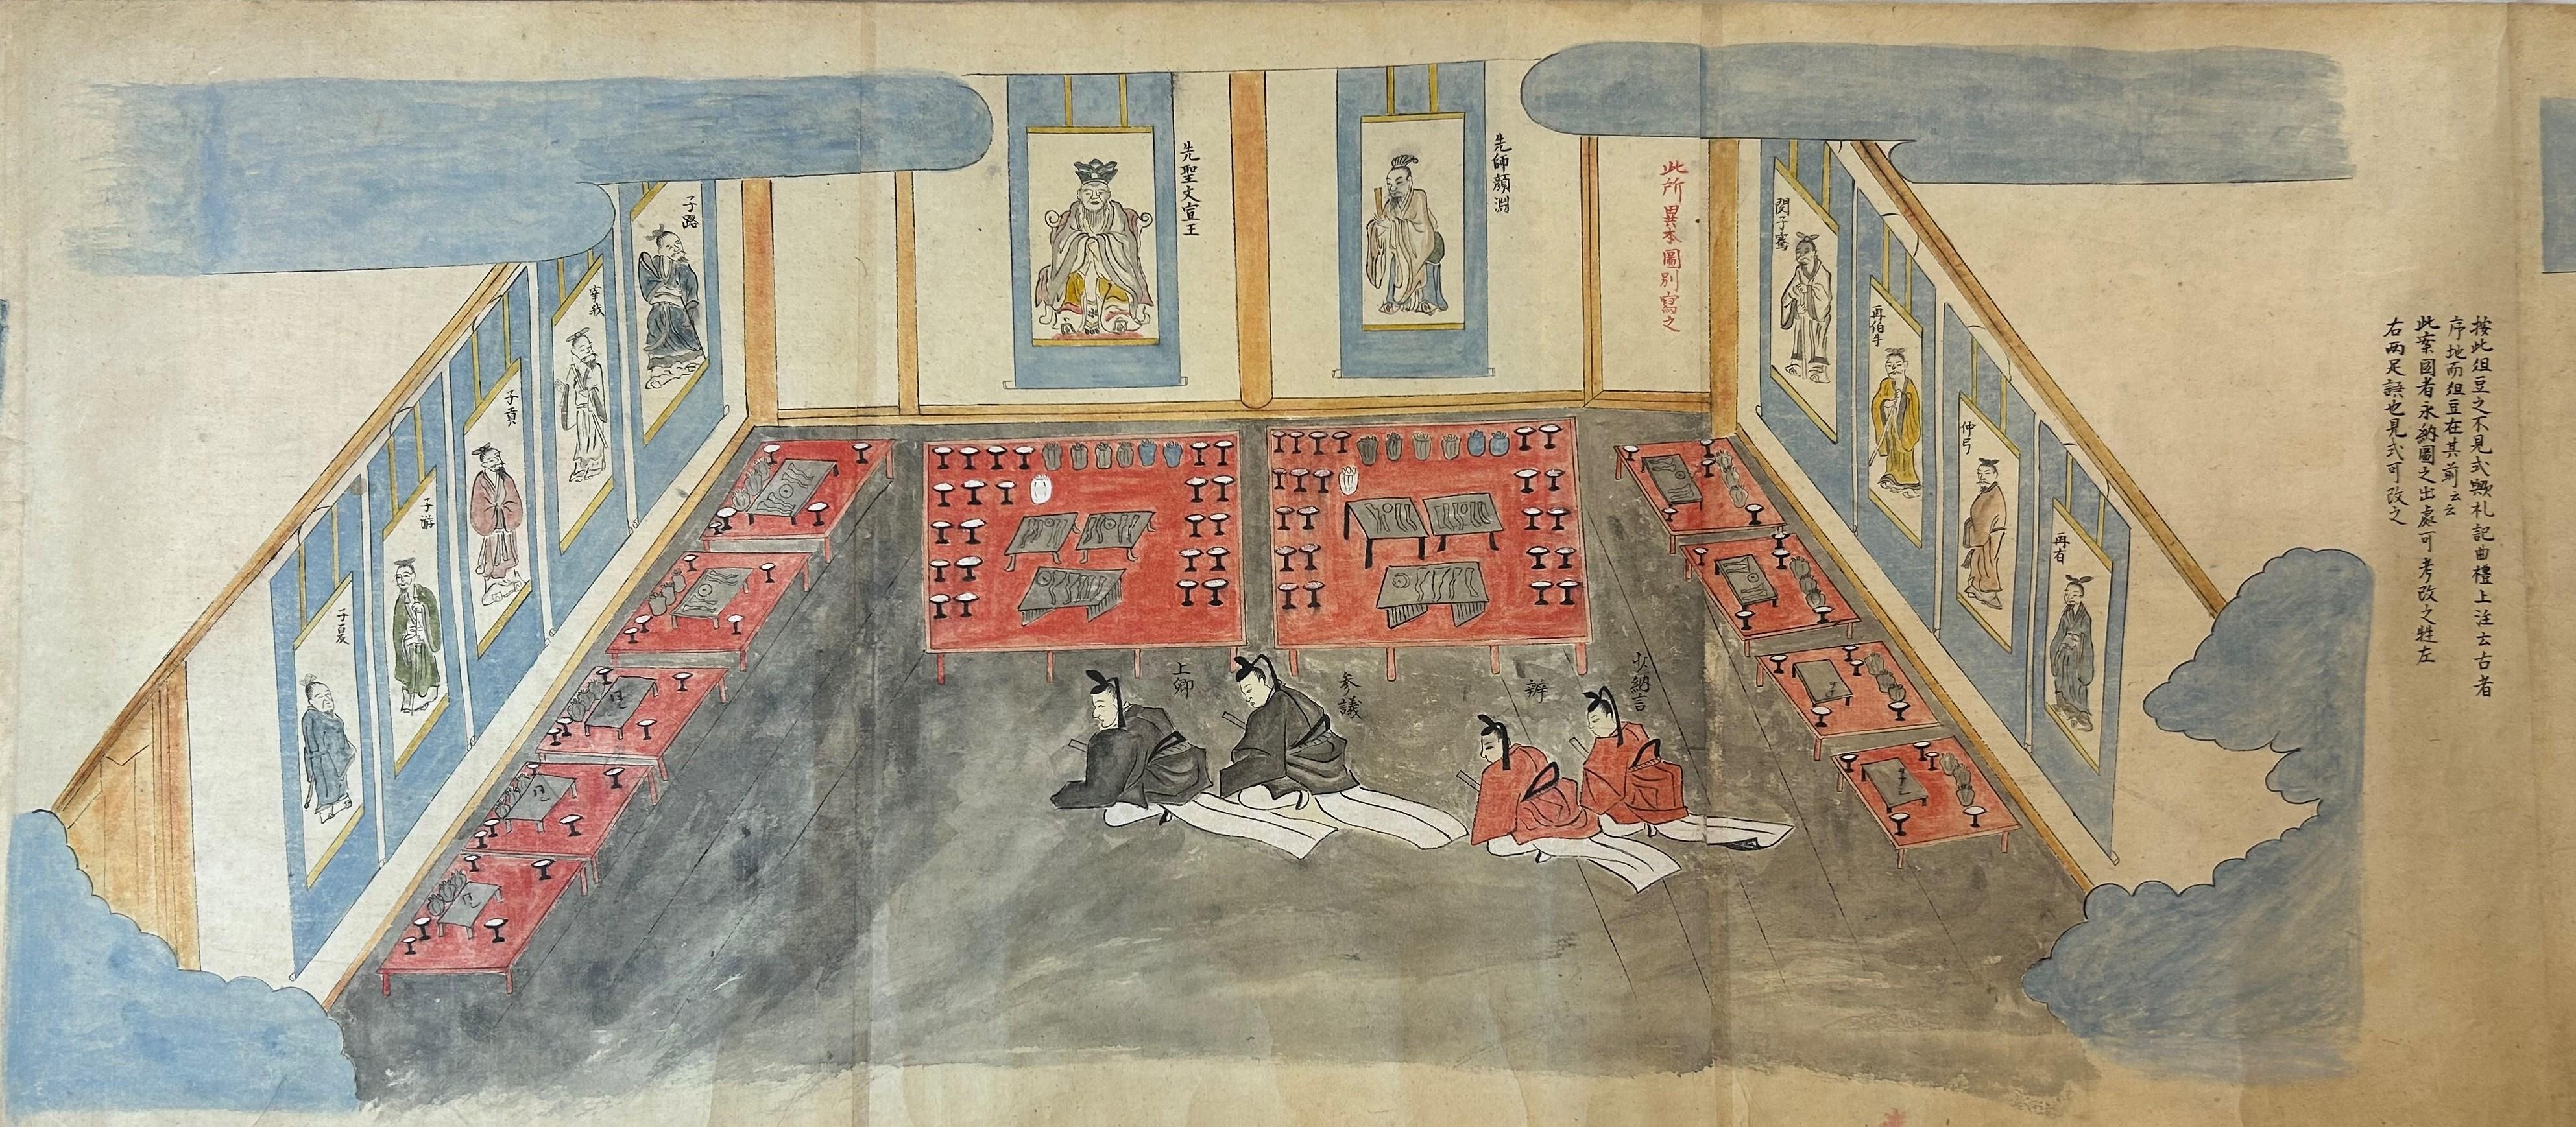 按此俎豆之不見式歟礼記曲禮上注云古者
序地而俎豆在其前云云
此案図者永納圖之出處可考改之牲左
右两足誤也見式可改之
閔子騫
冉伯牛
仲弓
冉有
此所異本圖別寫之
先師顔淵
先聖文宣王
子路
宰我
子貢
子游
子夏
少納言
辨
参議
上卿